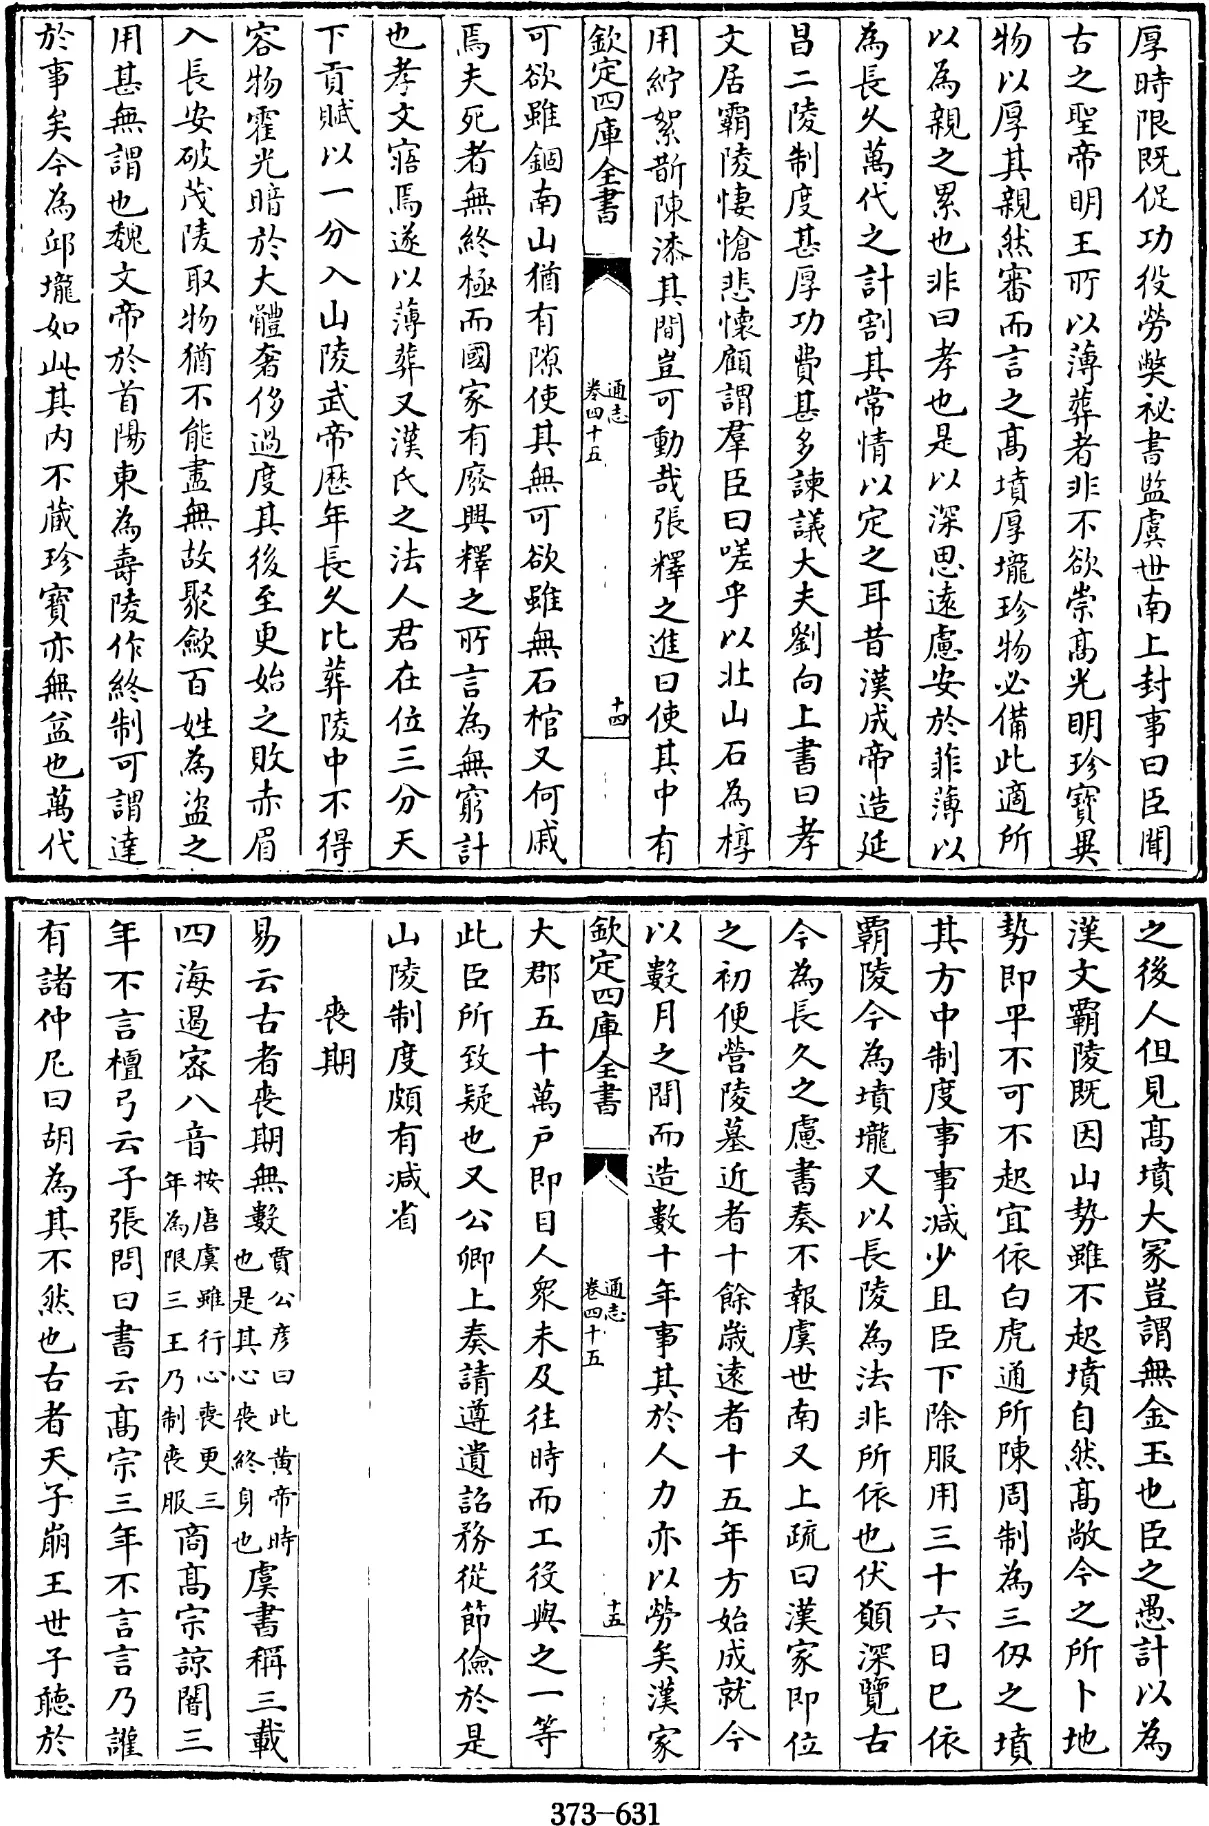 厚時限既促功役勞弊祕書監虞世南上封事曰臣聞
古之聖帝明王所以薄葬者非不欲崇髙光明珍寳異
物以厚其親然審而言之髙墳厚壠珍物必備此適所
以為親之累也非曰孝也是以深思遠慮安於菲薄以
為長久萬代之計割其常情以定之耳昔漢成帝造延
昌二陵制度甚厚功費甚多諫議大夫劉向上書曰孝
文居霸陵悽愴悲懐顧謂羣臣曰嗟乎以北山石為椁
用紵絮斮陳漆其間豈可動哉張釋之進曰使其中有
欽定四庫全書
通志
卷四十五
十四
可欲雖錮南山猶有隙使其無可欲雖無石棺又何戚
焉夫死者無終極而國家有廢興釋之所言為無窮計
也孝文寤焉遂以薄葬又漢氏之法人君在位三分天
下貢賦以一分入山陵武帝歴年長久比葬陵中不得
容物霍光暗於大體奢侈過度其後至更始之敗赤眉
入長安破茂陵取物猶不能盡無故聚歛百姓為盗之
用甚無謂也魏文帝於首陽東為壽陵作終制可謂達
於事矣今為邱壠如此其内不藏珍寳亦無益也萬代
之後人但見髙墳大冢豈謂無金玉也臣之愚計以為
漢文霸陵既因山勢雖不起墳自然髙敞今之所卜地
勢即平不可不起宜依白虎通所陳周制為三仭之墳
其方中制度事事減少且臣下除服用三十六日已依
霸陵今為墳壠又以長陵為法非所依也伏願深覽古
今為長久之慮書奏不報虞世南又上疏曰漢家即位
之初便營陵墓近者十餘歳逺者十五年方始成就今
以數月之間而造數十年事其於人力亦以勞矣漢家
欽定四庫全書
通志
卷四十五
十五
大郡五十萬户即目人衆未及往時而工役與之一等
此臣所致疑也又公卿上奏請遵遺詔務從節儉於是
山陵制度頗有減省
喪期
易云古者喪期無數賈公彦曰此黄帝時也是其心喪終身也虞書稱三載
四海遏宻八音按唐虞雖行心喪更三年為限三王乃制喪服商髙宗諒闇三
年不言檀弓云子張問曰書云髙宗三年不言言乃讙
有諸仲尼曰胡為其不然也古者天子崩王世子聽於
373-631